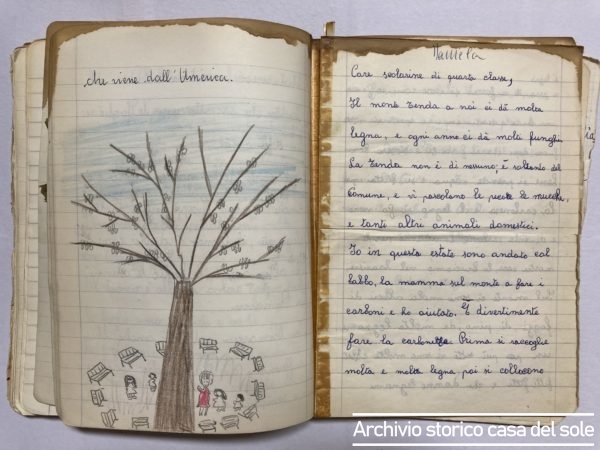 che viene dall'America.
Care scolarine di quarta classe,
Il monte Tenda a noi ci dà molta
legna, e ogni anno ci dà molti funghi.
La Tenda non è di nessuno, è soltanto del
Comune, e vi pascolano le mucche,
e tanti altri animali domestici.
Io in questa estate sono andato col
babbo, la mamma sul monte a fare i
carboni e ho aiutato. È divertente
fare la carbonella Prima si raccoglie
molta e molta legna poi si collocano
Archivio storico casa del sole